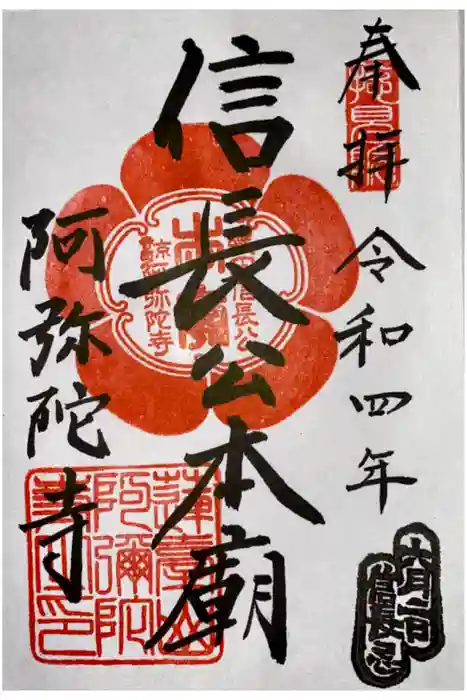 奉拝
令和四年
六月二日
信長忌
信長公本廟
阿弥陀寺
信長公
阿弥陀寺
蓮臺山
阿彌陀
寺
印